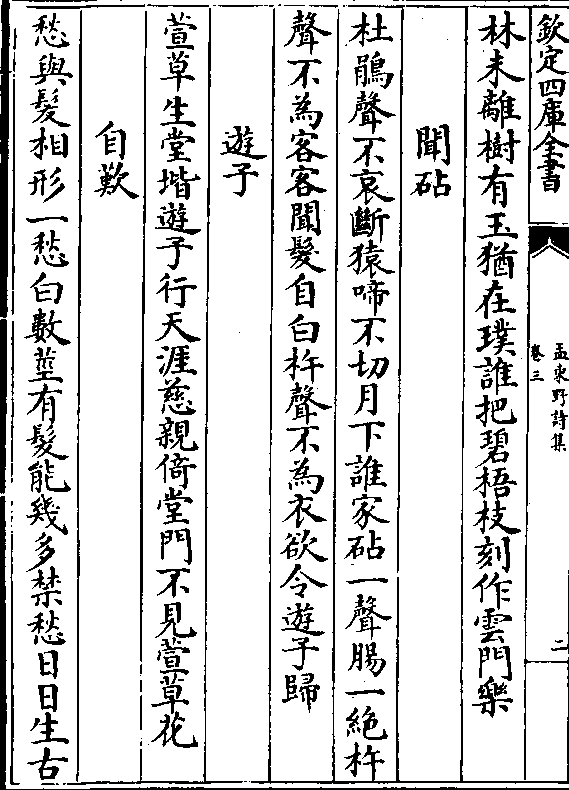 欽定四庫全書
孟東野詩集
卷三
二
林未離樹有玉猶在璞誰把碧梧枝刻作雲門樂
聞砧
杜鵑聲不哀斷猿啼不切月下誰家砧一聲腸一絶杵
聲不為客客聞髮自白杵聲不為衣欲令遊子歸
遊子
萱草生堂堦遊子行天涯慈親倚堂門不見萱草花
自歎
愁與髮相形一愁白數莖有髮能幾多禁愁日日生古